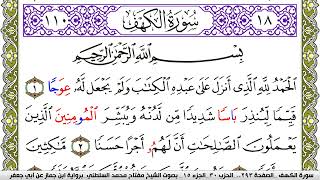 ١١٠ سُورَةُ الْكَهْفِ ١٨
بِسْمِ اللَّهِ الرَّحْمَٰنِ الرَّحِيمِ
الْحَمْدُ لِلَّهِ الَّذِي أَنزَلَ عَلَىٰ عَبْدِهِ الْكِتَٰبَ وَلَمْ يَجْعَل لَّهُ عِوَجًا ١
قَيِّمًا لِّيُنذِرَ بَاسًا شَدِيدًا مِّن لَّدُنْهُ وَيُبَشِّرَ الْمُومِنِينَ الَّذِينَ
يَعْمَلُونَ الصَّٰلِحَٰتِ أَنَّ لَهُمُ أَجْرًا حَسَنًا ٢ مَّٰكِثِينَ
سورة الكهف . الصفحة ٢٩٣ . الحزب ٣٠ الجزء ١٥ بصوت الشيخ مفتاح محمد السلطني، برواية ابن جماز عن أبي جعفر